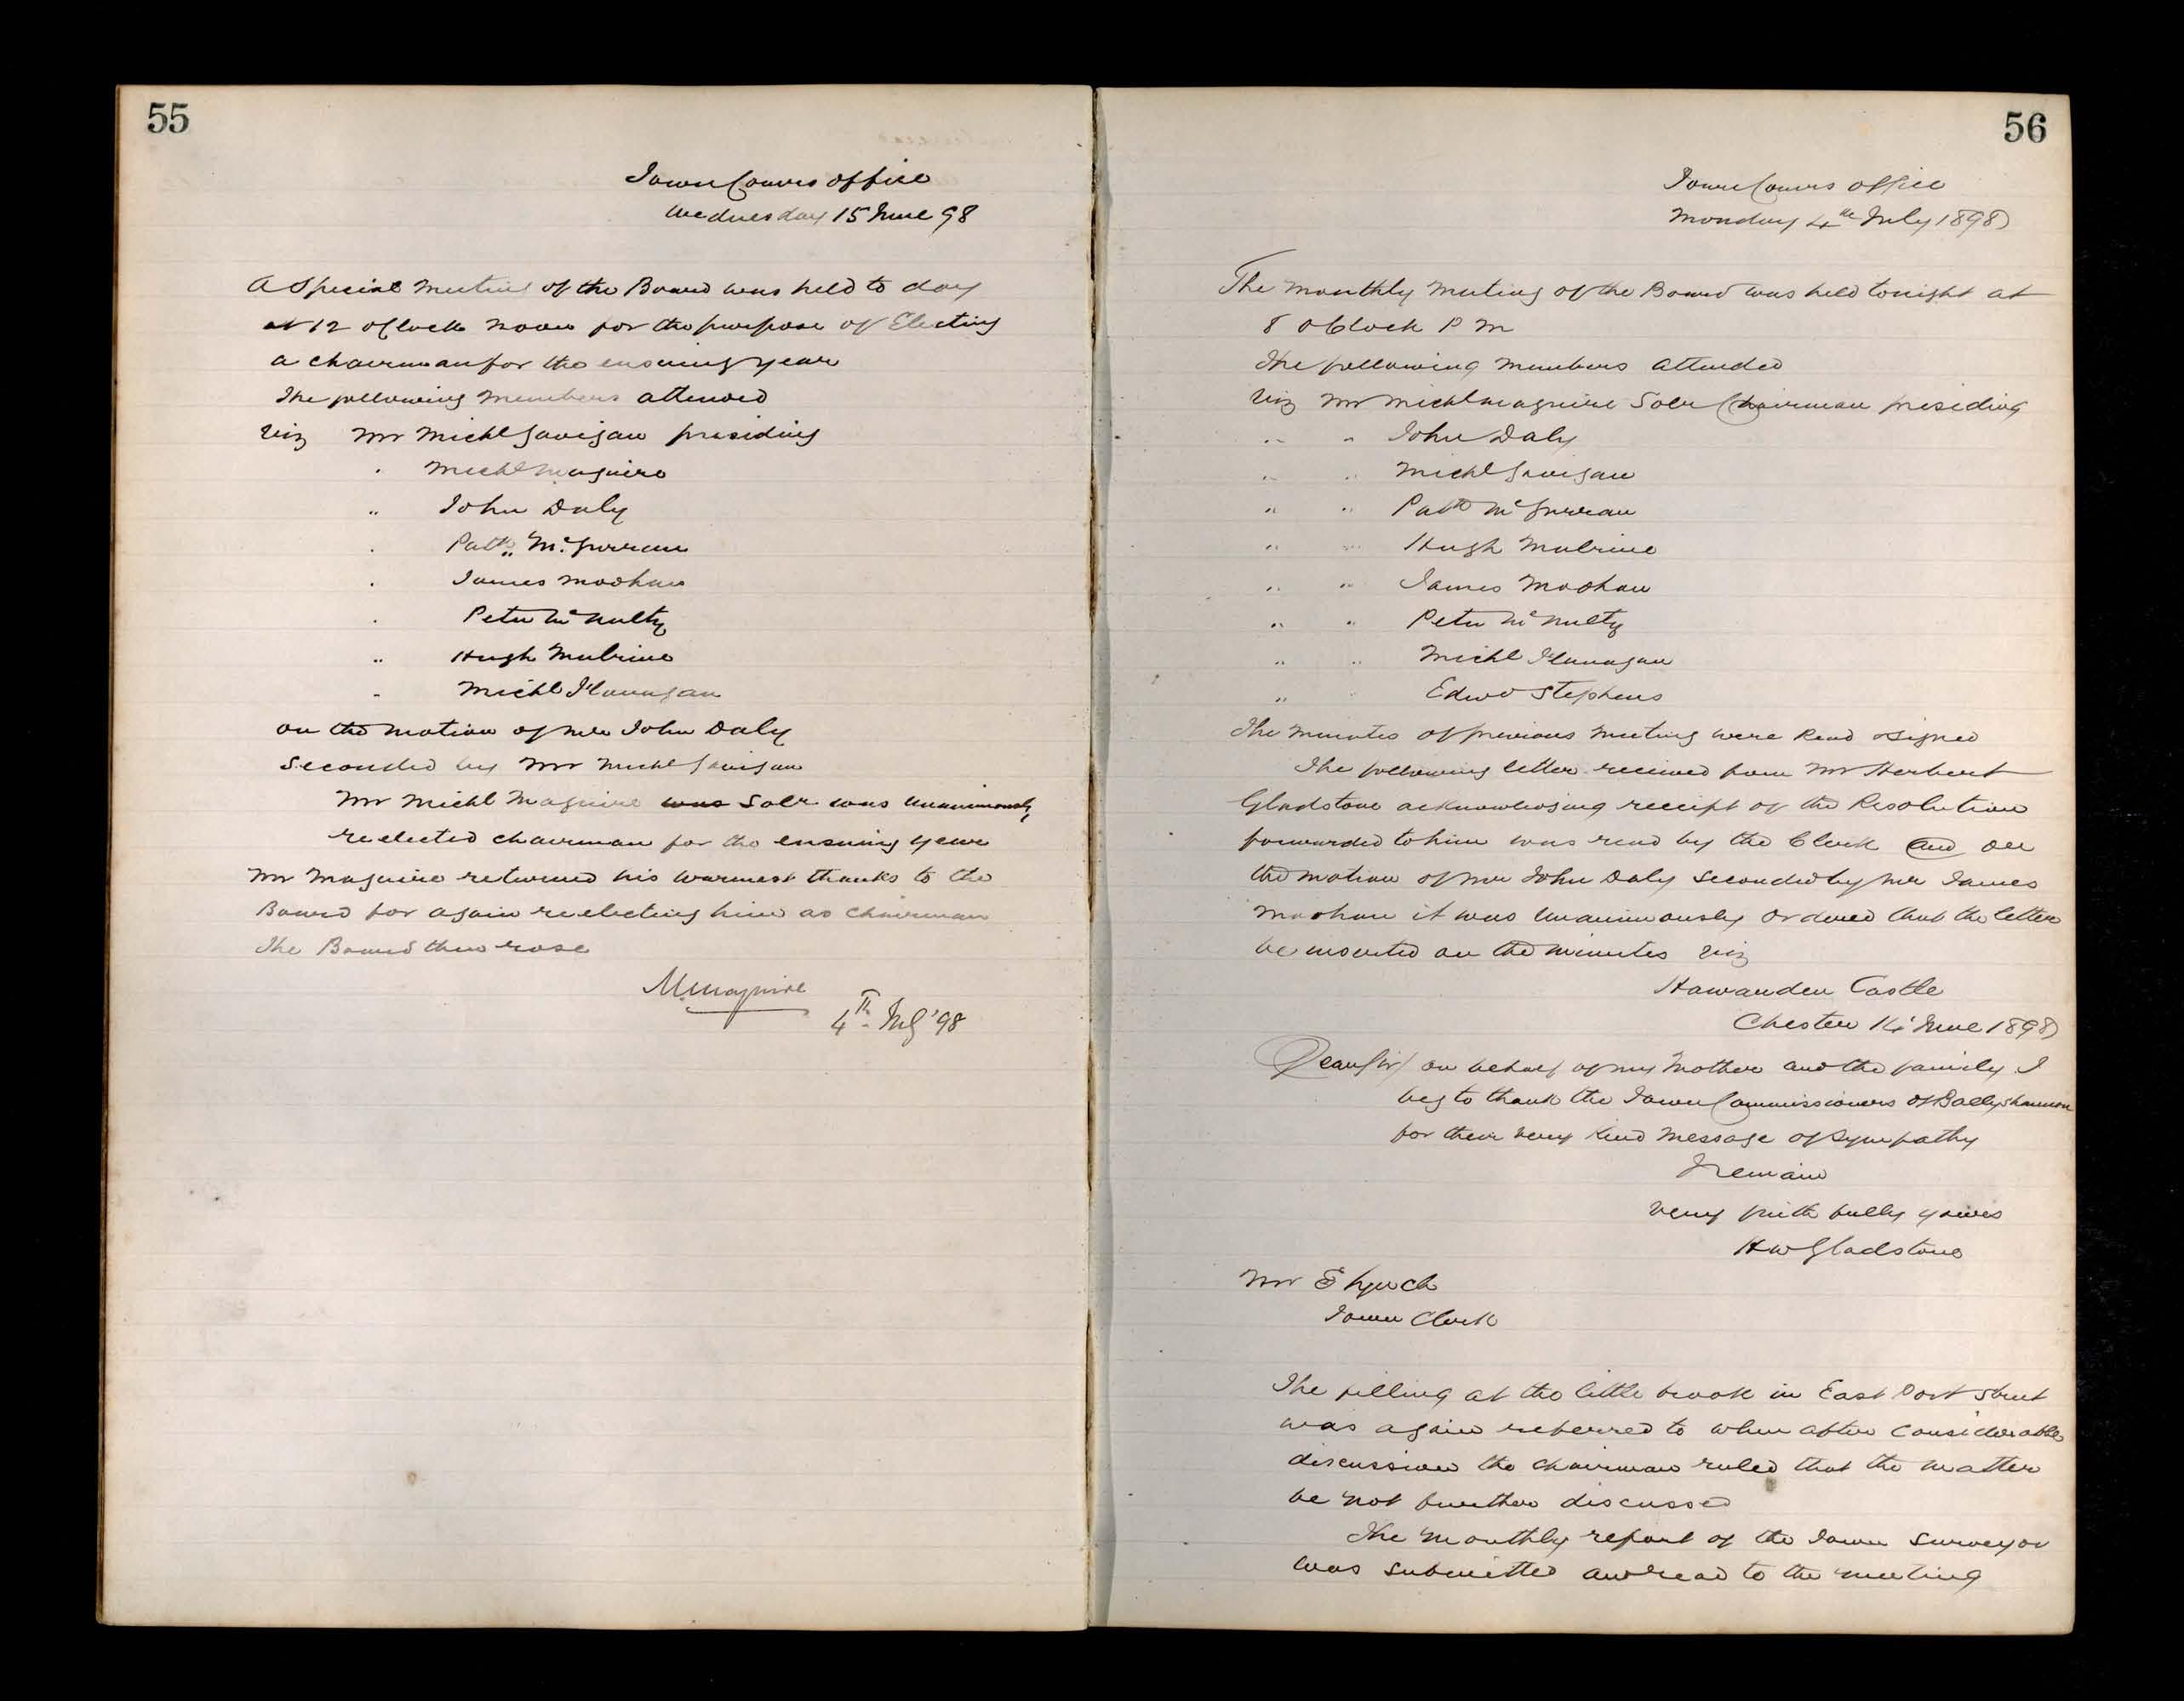 55
Town Comrs Office
Wednesday 15 June 98
A Special Meeting of the Board was held to day
at 12 oClock noon for the purpose of Electing
a chairman for the ensuing year
The following Members attended
Viz Mr Michl Gavigan presiding
. Michl Maguire
" John Daly
. Patk McGurran
. James Moohan
. Peter McNulty
" Hugh Mulrine
" Michl Flanagan
on the motion of Mr John Daly
Seconded by Mr Michl Gavigan
Mr Michl Maguire was Solr was unanimously
reelected chairman for the ensuing year
Mr Maguire returned his warmest thanks to the
Board for again reelecting him as chairman
The Board then rose
M Maguire
4th July '98
56
Town Comrs Office
Monday 4th July 1898
The Monthly Meeting of the Board was held tonight at
8 oClock P M
The following Members attended
Viz Mr Michl Maguire Solr Chairman presiding
" " John Daly
" " Michl Gavigan
" " Patk McGurran
" " Hugh Mulrine
" " James Moohan
" " Peter McNulty
" " Michl Flanagan
" " Edwd Stephens
The Minutes of previous Meeting were Read & signed
The following letter received from Mr Herbert
Gladstone acknowledging receipt of the Resolution
forwarded to him was read by the Clerk and on
the motion of Mr John Daly Seconded by Mr James
Moohan it was unanimously ordered that the letter
be inserted on the minutes Viz
Hawarden Castle
Chester 14 June 1898
Dear Sir/ on behalf of my Mother and the family I
beg to thank the Town Commissioners of Ballyshannon
for their very kind message of sympathy
I remain
very faithfully yours
H W Gladstone
Mr E Lynch
Town Clerk
The filling at the little brook in East Port Street
was again referred to when after considerable
discussion the chairman ruled that the matter
be not further discussed
The Monthly report of the Town Surveyor
was submitted and read to the meeting